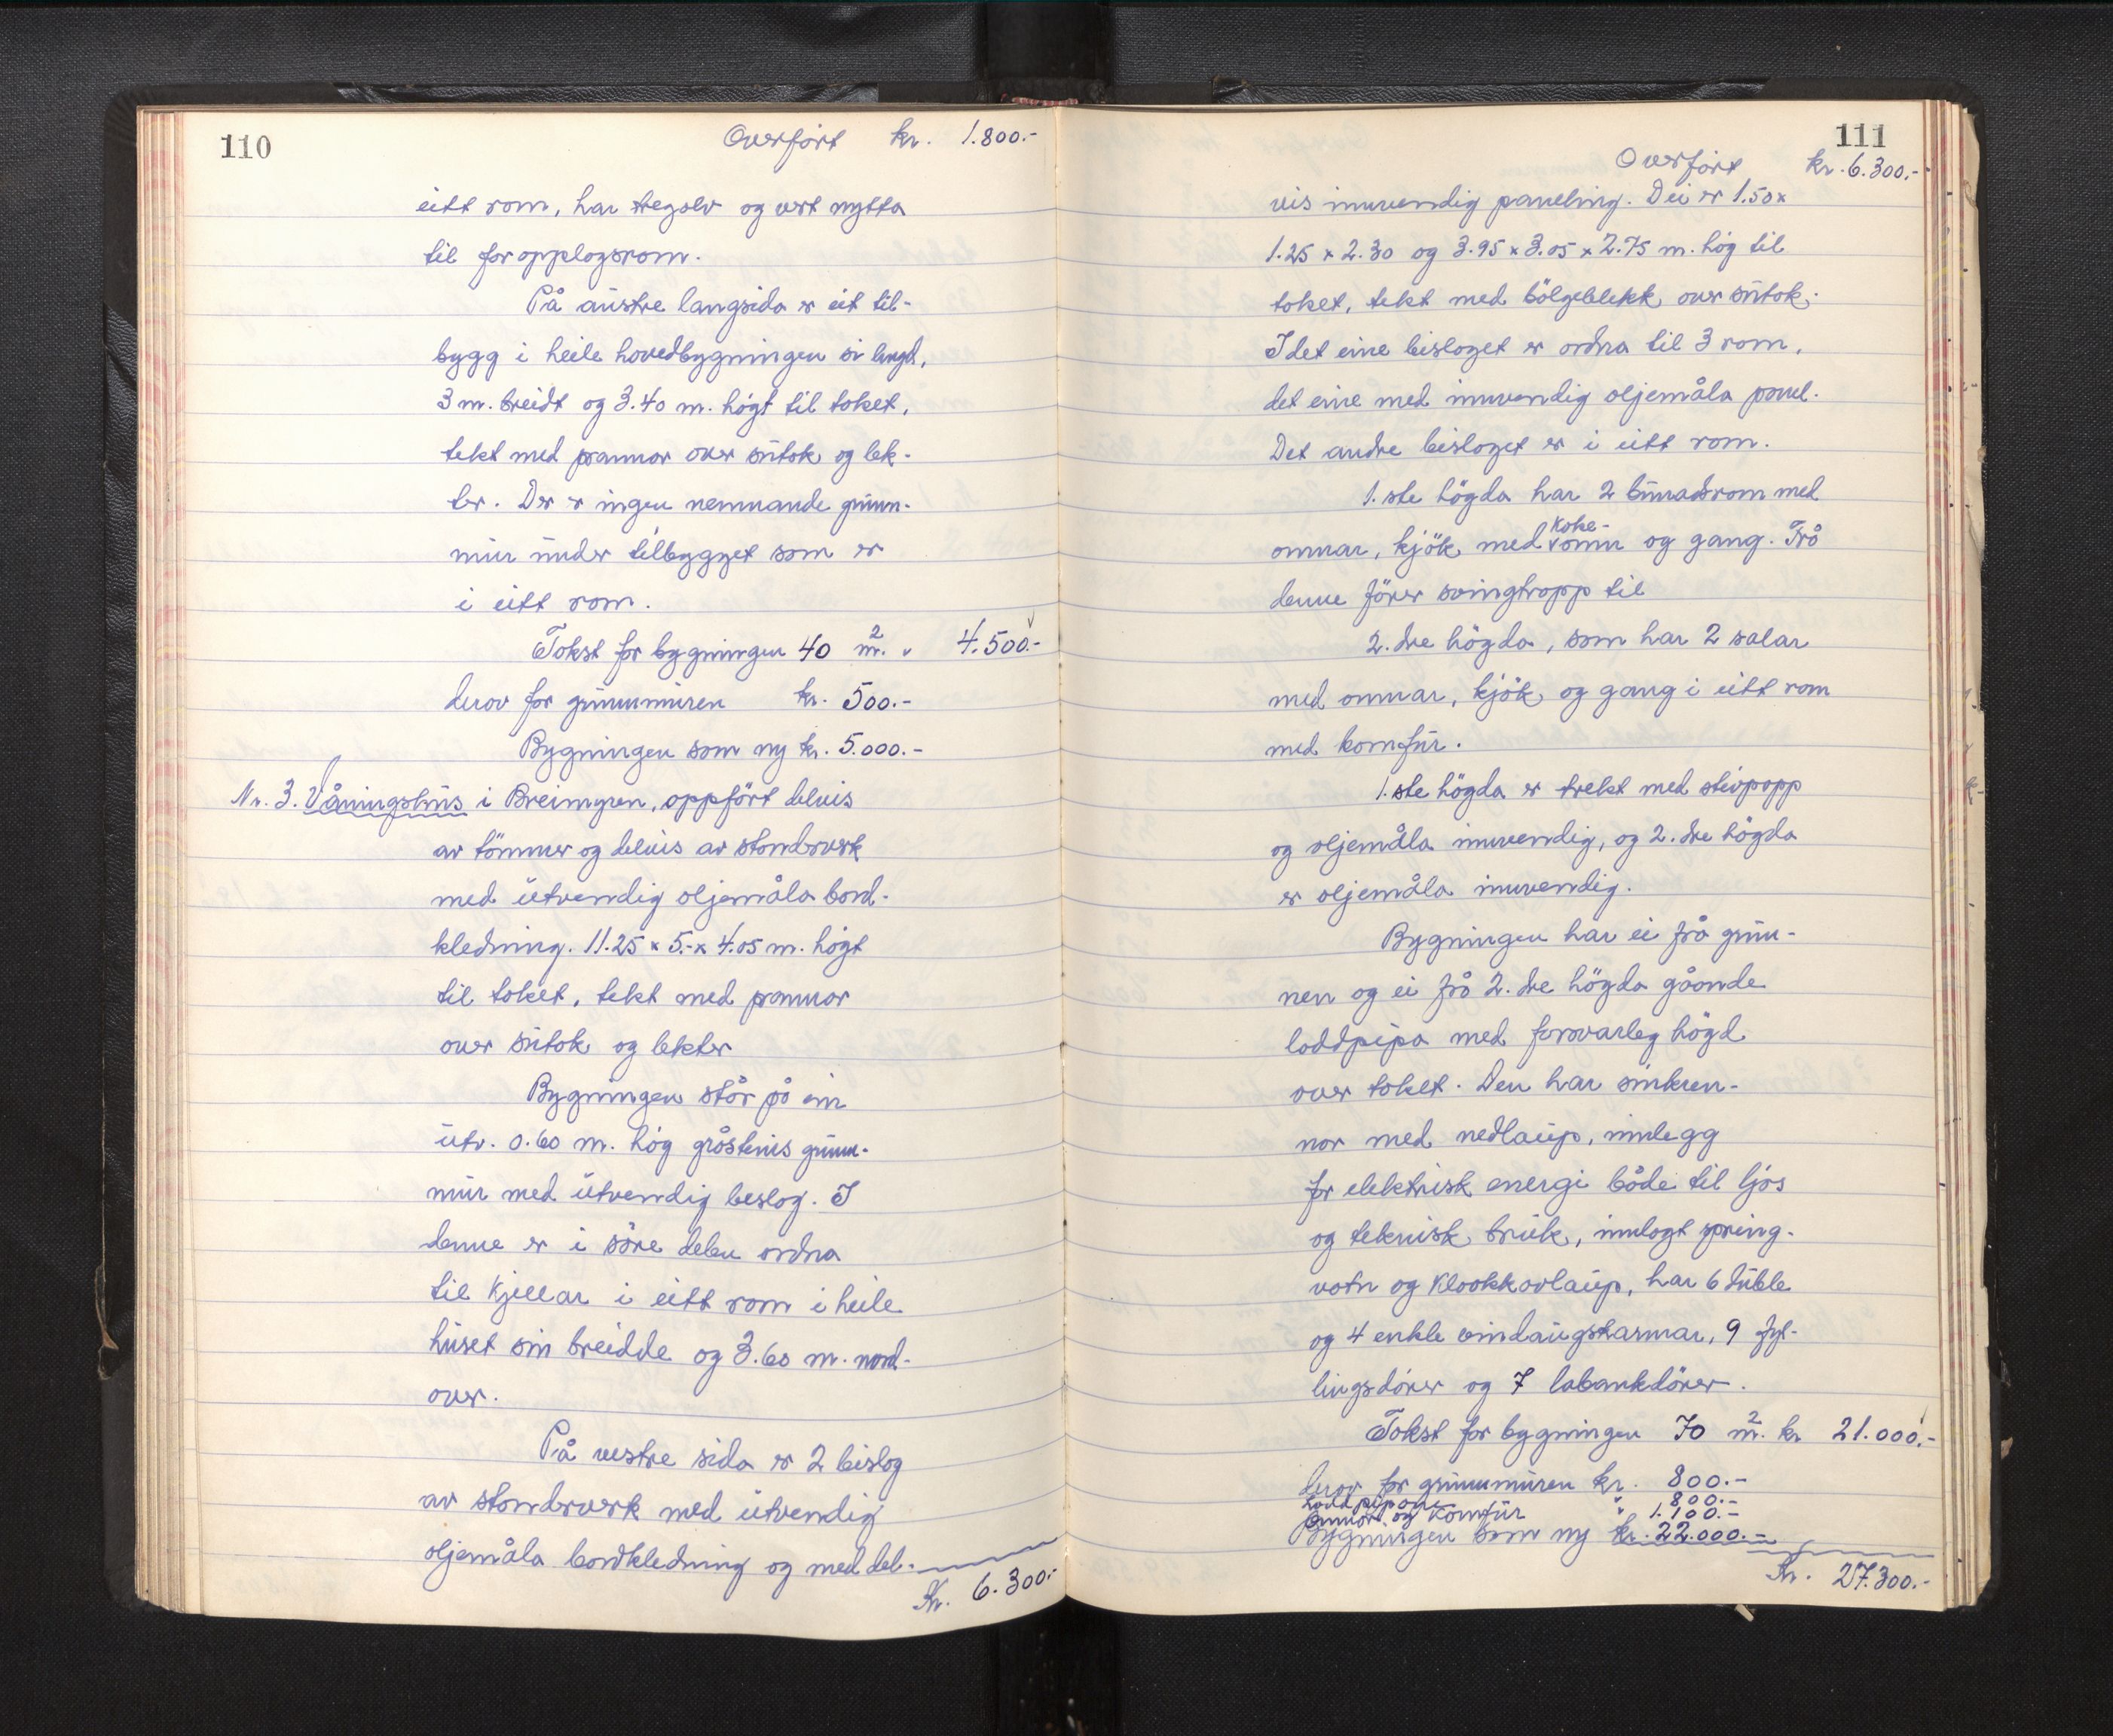 110
Overført kr. 1.800.-
eitt rom, har tregolv og vert nytta
til foropplagsrom.
På austre langsida er eit til-
bygg i heile hovedbygningen si lengd,
3 m. breidt og 3.40 m. høgt til taket,
tekt med pannar over sutak og lek-
ter. Der er ingen nemnande grunn-
mur under tilbygget som er
i eitt rom.
Takst for bygningen 40 m². " 4.500.-
derav for grunnmuren kr. 500.-
Bygningen som ny kr. 5.000.-
Nr. 3. Våningshus i Breimyren, oppført delvis
av tömmer og delvis av standarverk
med utvendig oljemåla bord-
kledning. 11.25 x 5.- x 4.05 m. högt
til taket, tekt med pannar
over sutak og lekter
Bygningen står på ein
utv. 0.60 m. høg gråsteins grunn-
mur med utvendig beslag. I
denne er i söre delen ordna
til kjellar i eitt rom i heile
huset sin breidde og 3.60 m. nord-
over.
På vestre sida er 2 beislag
av standarverk med utvendig
oljemåla bordkledning og med del-
Kr. 6.300.-
111
Overført kr. 6.300.-
vis innvendig paneling. Dei er 1.50 x
1.25 x 2.30 og 3.95 x 3.05 x 2.75 m. høg til
taket, tekt med bölgeblekk over sutak.
I det eine beislaget er ordna til 3 rom,
det eine med innvendig oljemåla panel.
Det andre beislaget er i eitt rom.
1.ste högda har 2 bunadsrom med
omnar, kjök med koke-omn og gang. Frå
denne förer svingtrapp til
2.dre högda, som har 2 salar
med omnar, kjök og gang i eitt rom
med komfur.
1.ste högda er trekt med stivpapp
og oljemåla innvendig, og 2.dre högda
er oljemåla innvendig.
Bygningen har ei frå grun-
nen og ei frå 2.dre högda gåande
loddpipa med forsvarleg högd
over taket. Den har sinkren-
nor med nedlaup, innlegg
for elektrisk energi både til ljos
og teknisk bruk, innlagt spring-
vatn og kloakkavlaup, har 6 duble
og 4 enkle vindaugskarmar, 9 fyl-
lingsdörer og 7 labankdörer.
Takst for bygningen 70 m². kr 21.000.-
derav for grunnmuren kr. 800.-
loddpipone " 800.-
omnar og komfur " 1.100.-
Bygningen som ny kr. 22.000.-
Kr. 27.300.-